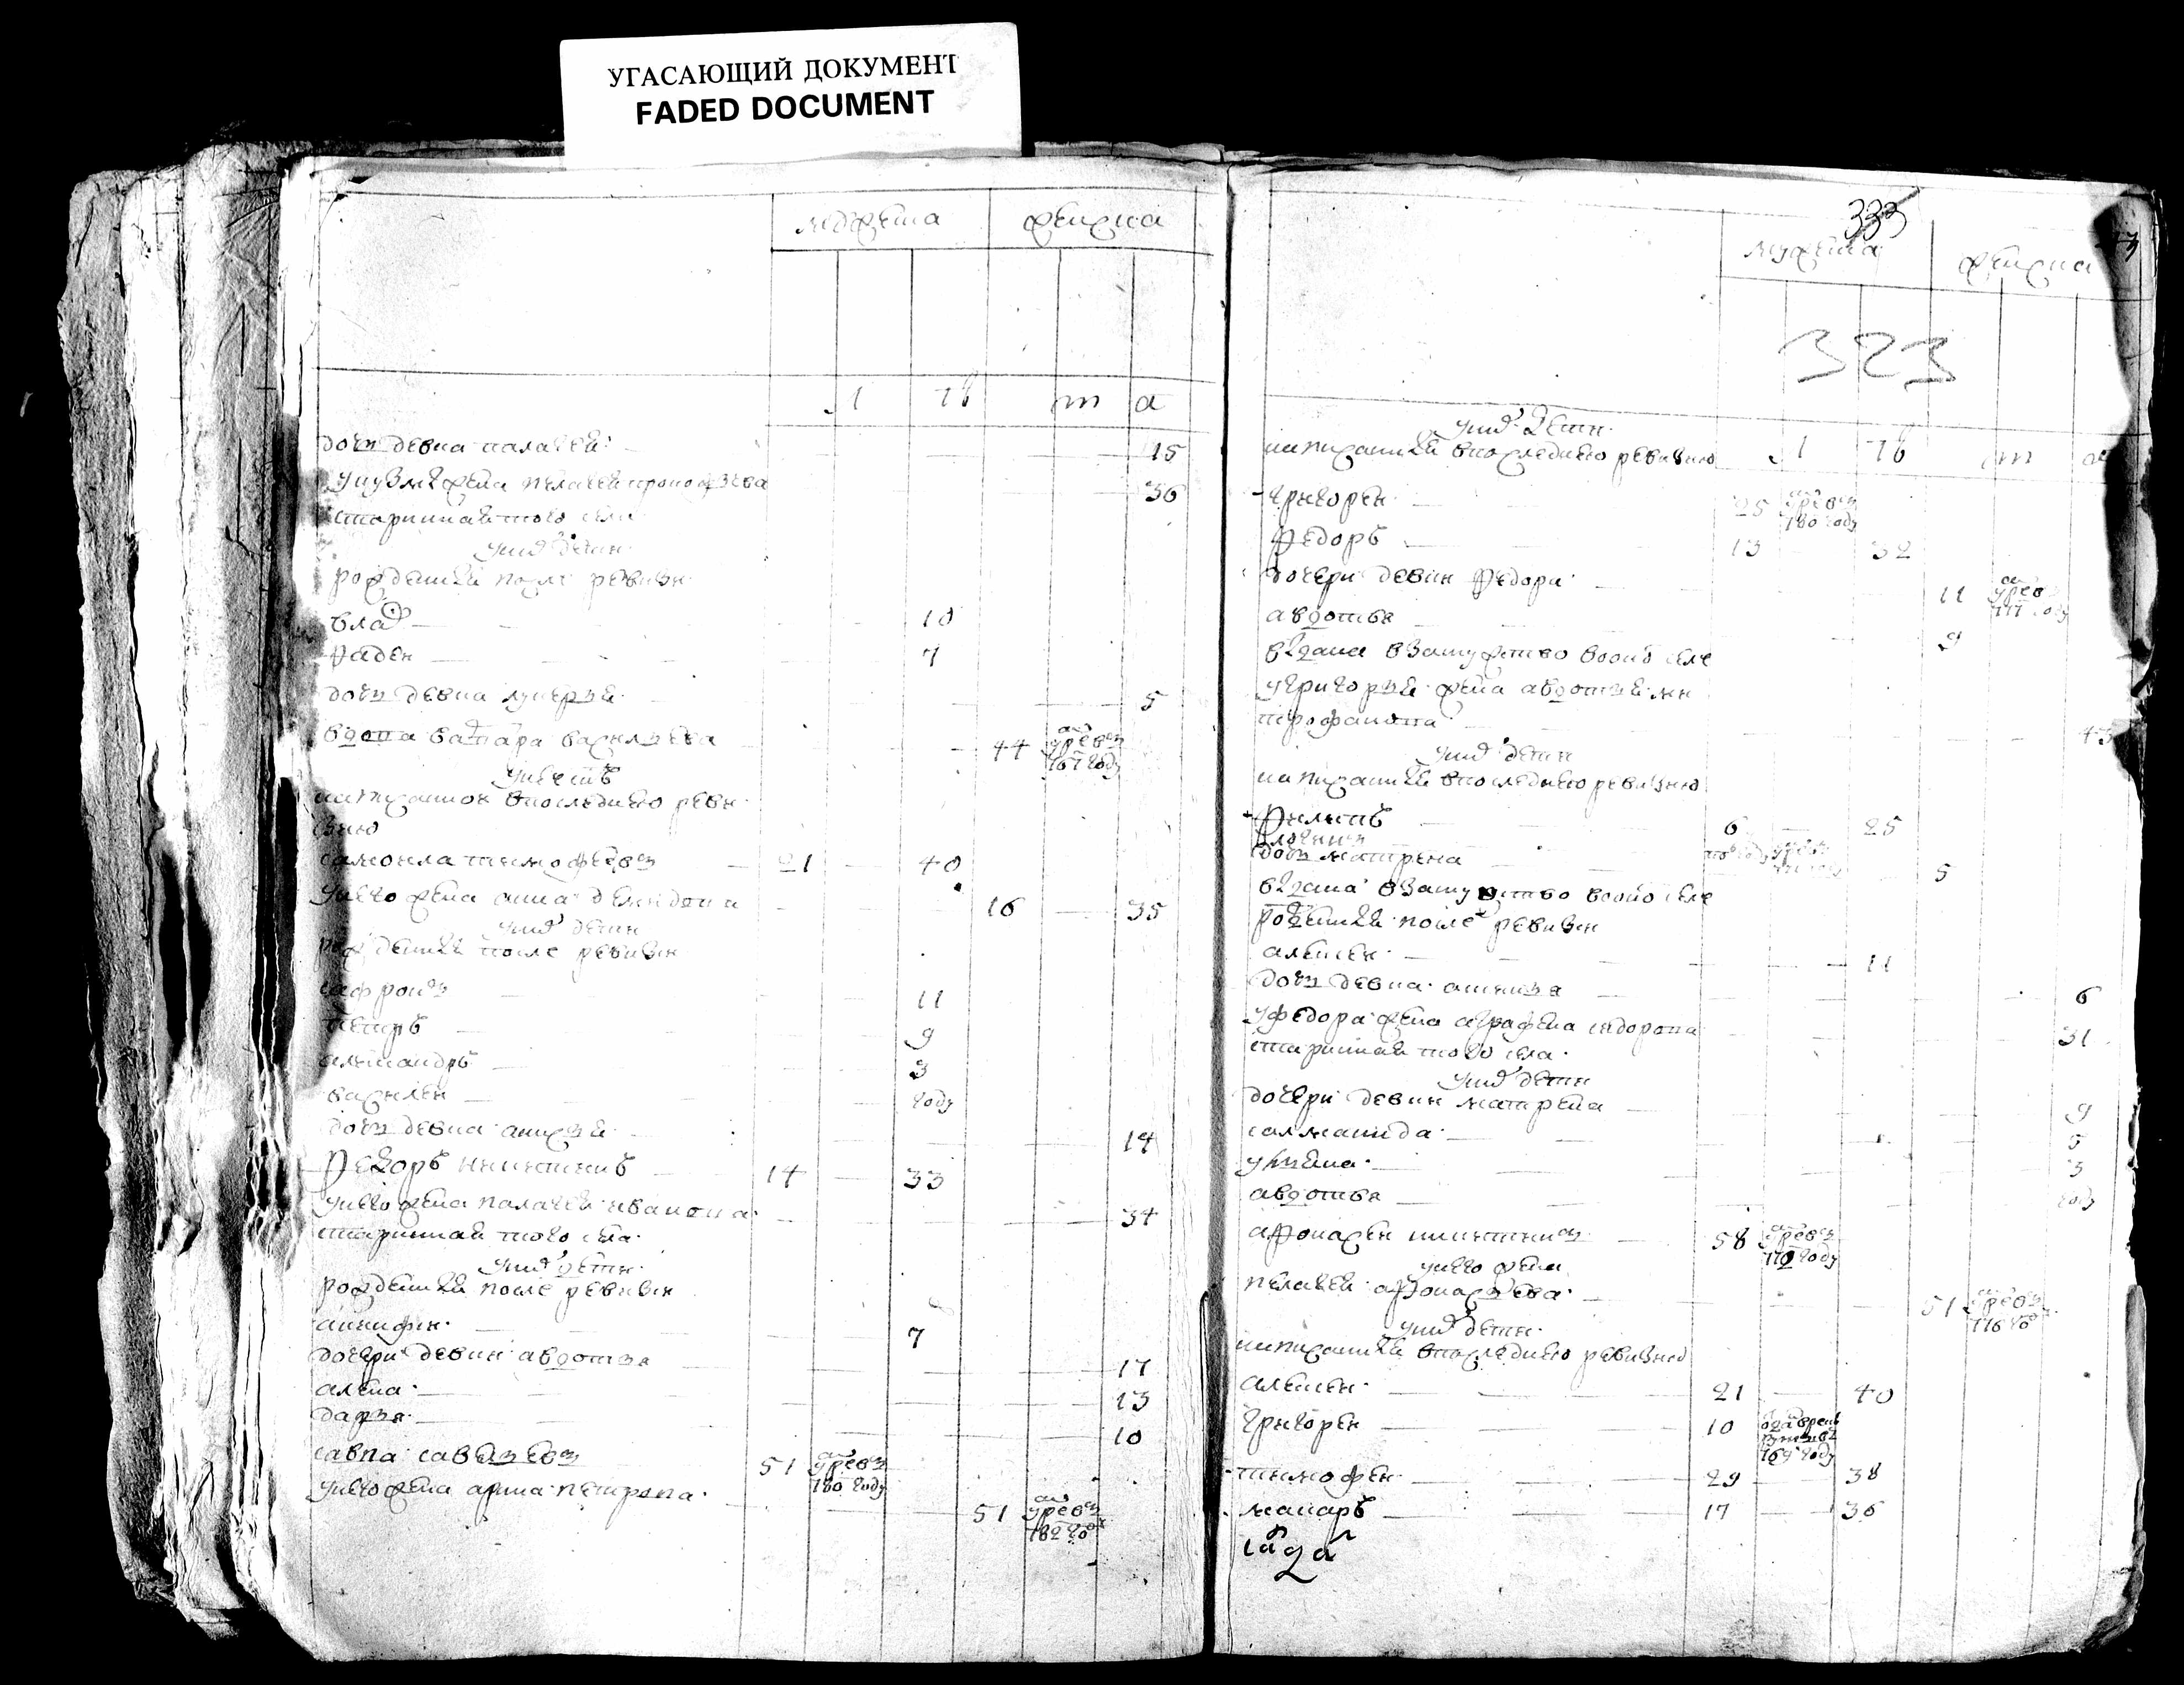 УГАСАЮЩИЙ ДОКУМЕНТ
FADED DOCUMENT
мужеска женска
л т ъ м а
дочь девка палагея 15
жена пелагея 36
старинная того села
у них дети
рожденныя после ревизии
влас 10
фадеи 7
дочь девка лукеря 5
вдова васильева 44 умре в 767 году
у нее сын
написанной в последнюю реви
зию
самоила тимофеев 21 40
у него жена анна демидова 16 35
у них дети
рожденныя после ревизии
сафрон 11
петръ 9
александръ 3
василеи году
дочь девка анися 14
федоръ никитинъ 14 33
у него жена палагея иванова 34
старинная того села
у них дети
рожденныя после ревизии
7
дочери девки авдотья 17
алена 13
дарья 10
савва савельев 51 умре в 780 году
у него жена арина петрова 51 умре в 782 году
333
мужеска женска
323
у них дети
написанныя в последнюю ревизию л т ъ м а
григореи 25 умре в 780 году
федоръ 13 32
дочери девки федора 11 умре 777 году
авдотья 9
выдана в замужство в оном селе
у григорья жена авдотья ми
трофанова 43
у них дети
написанныя в последнюю ревизию
филипъ 6 25
близнецы
дочь матрена 5
выдана в замужство в оном селе
рожденныя после ревизии
алексеи 11
дочь девка аксинья 6
у федора жена аграфена сидорова 31
старинная того села
у них дети
дочери девки матрена 9
саламанида 5
ульяна 3
авдотья году
афонасеи никитин 58 умре в 770 году
у него жена
пелагея афонасьева 51 умре в 776 году
у них дети
написанныя в последнюю ревизию
алексеи 21 40
григореи 10 769 году
тимофеи 29 38
макаръ 17 36